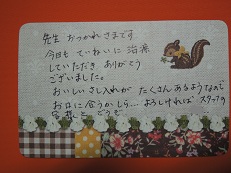 先生 おつかれさまです
今日も ていねいに 治療
していただき ありがとう
ございました。
おいしいさし入れが たくさんあるようなので
お口に合うかしら… よろしければ スタッフの
皆様と どうぞ